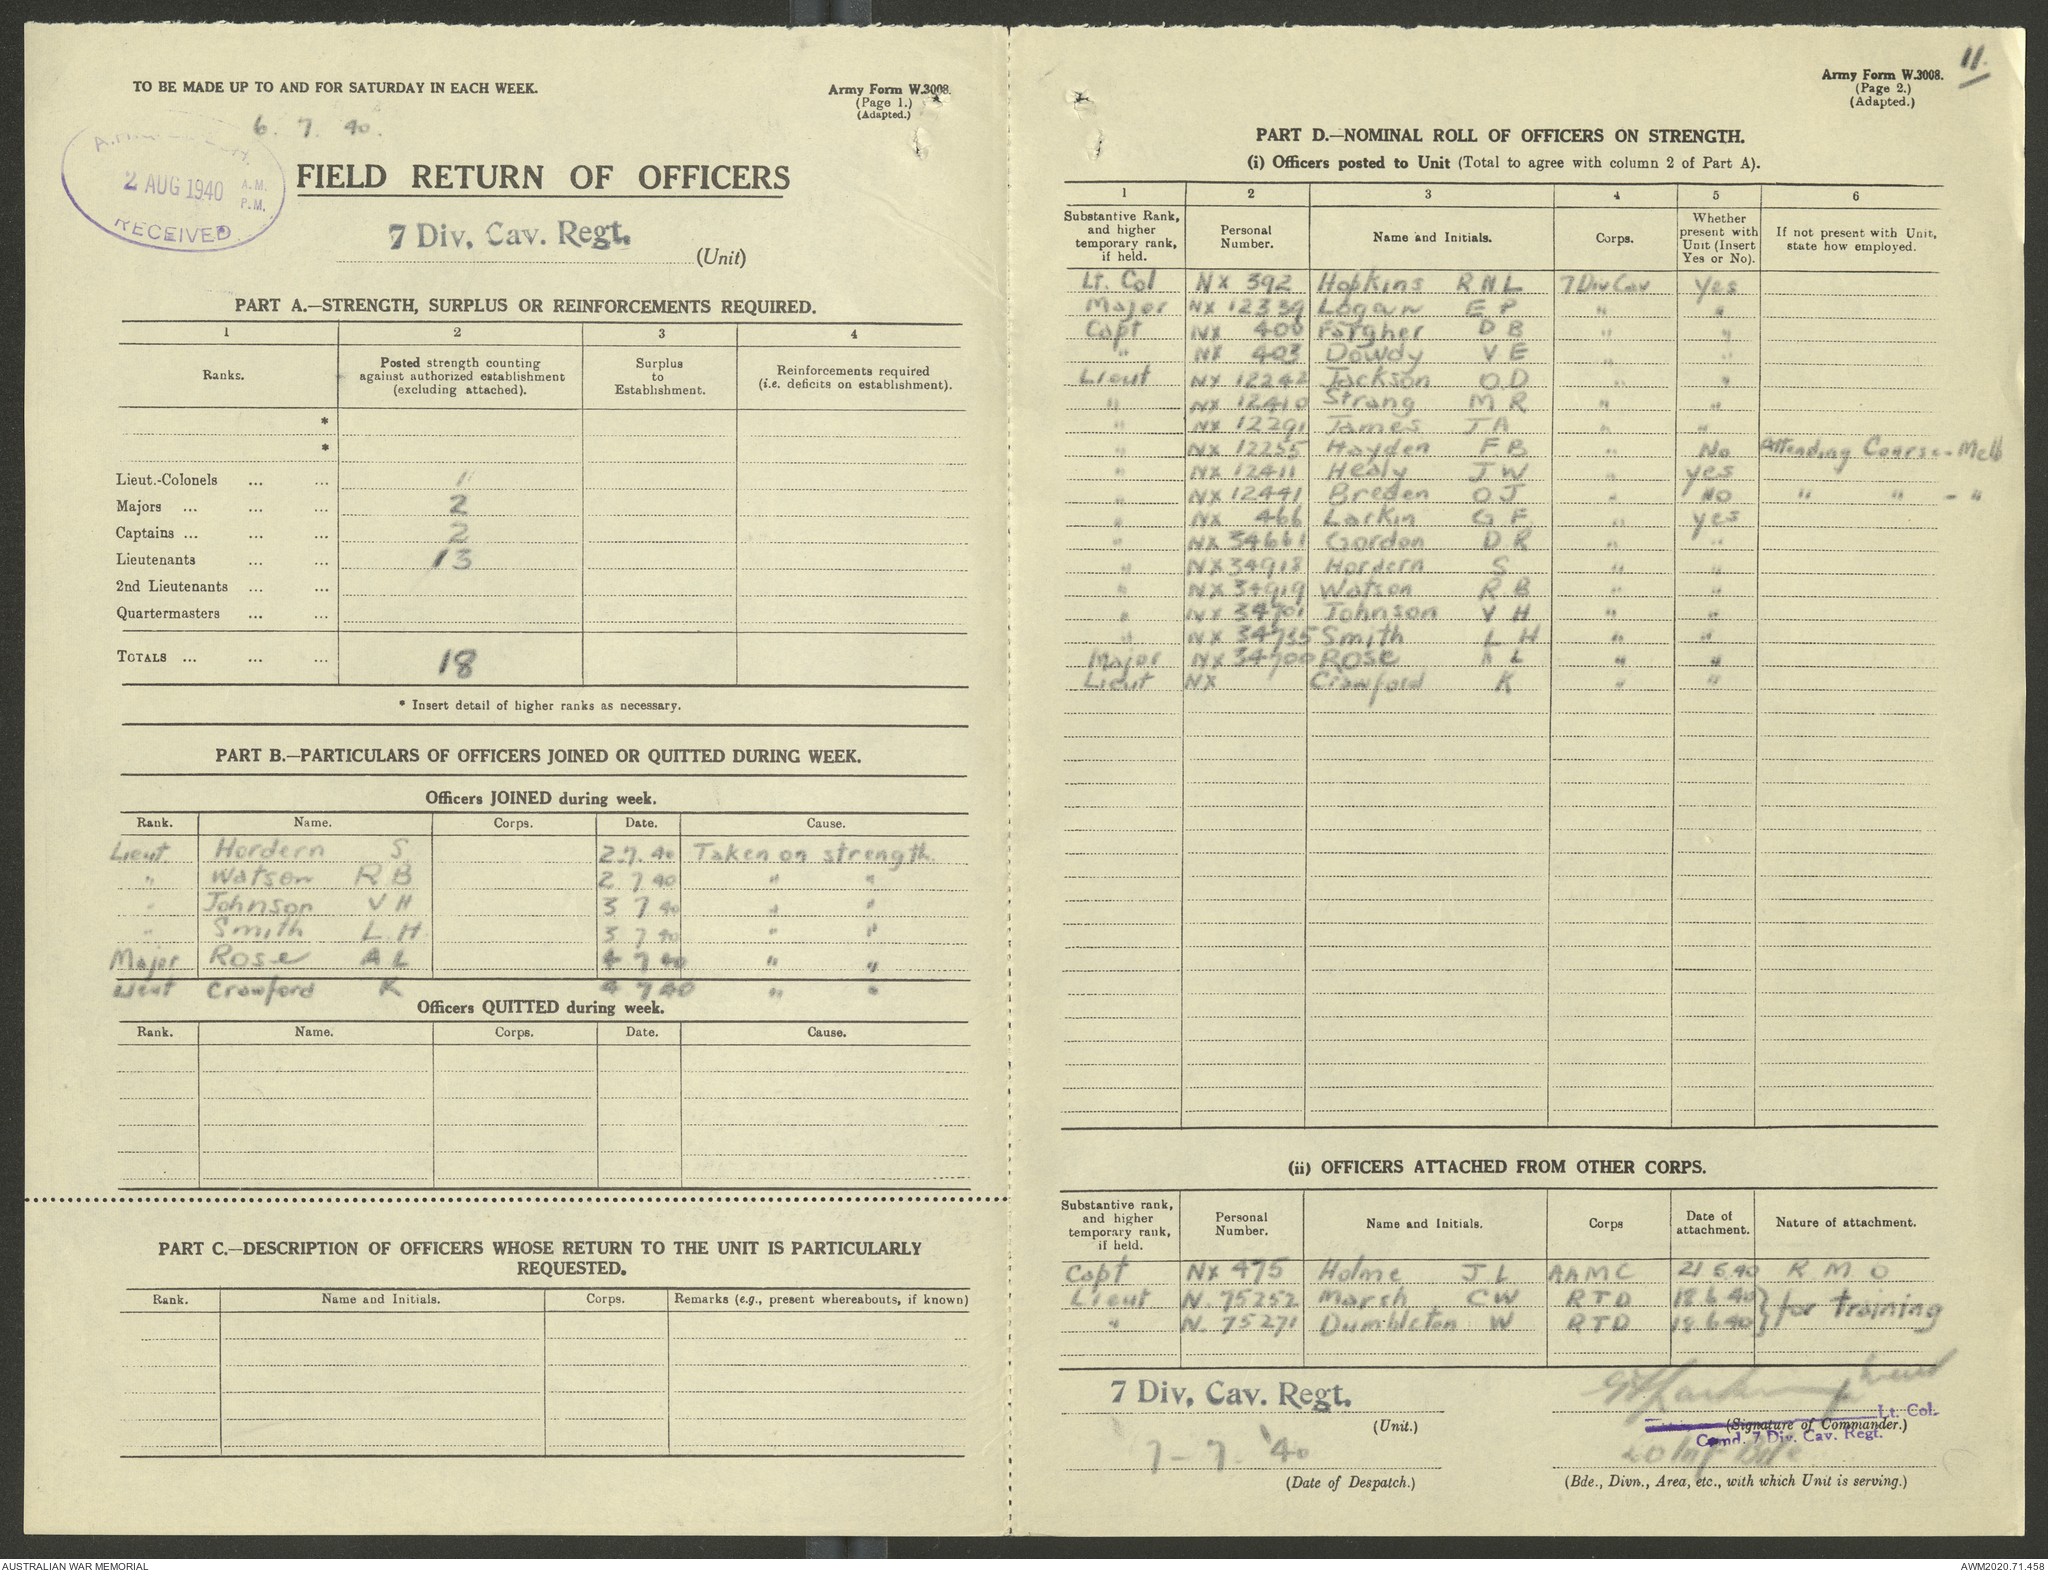 TO BE MADE UP TO AND FOR SATURDAY IN EACH WEEK.
Army Form W.3008.
(Page 1.)
(Adapted.)
6. 7. 40.
2 AUG 1940 A.M. P.M.
RECEIVED
FIELD RETURN OF OFFICERS
7 Div. Cav. Regt.
(Unit)
PART A.—STRENGTH, SURPLUS OR REINFORCEMENTS REQUIRED.
1 2 3 4
Ranks. Posted strength counting against authorized establishment (excluding attached). Surplus to Establishment. Reinforcements required (i.e. deficits on establishment).
*
*
Lieut.-Colonels ... ... 1
Majors ... ... ... 2
Captains ... ... ... 2
Lieutenants ... ... 13
2nd Lieutenants ... ...
Quartermasters ... ...
TOTALS ... ... ... 18
* Insert detail of higher ranks as necessary.
PART B.—PARTICULARS OF OFFICERS JOINED OR QUITTED DURING WEEK.
Officers JOINED during week.
Rank. Name. Corps. Date. Cause.
Lieut Hordern S 2.7.40 Taken on strength
" Watson R B 2 7 40 " "
" Johnson V H 3 7 40 " "
" Smith L H 3 7 40 " "
Major Rose A L 4 7 40 " "
Lieut Crawford K 4 7 40 " "
Officers QUITTED during week.
Rank. Name. Corps. Date. Cause.
PART C.—DESCRIPTION OF OFFICERS WHOSE RETURN TO THE UNIT IS PARTICULARLY REQUESTED.
Rank. Name and Initials. Corps. Remarks (e.g., present whereabouts, if known)
11.
Army Form W.3008.
(Page 2.)
(Adapted.)
PART D.—NOMINAL ROLL OF OFFICERS ON STRENGTH.
(i) Officers posted to Unit (Total to agree with column 2 of Part A).
1 2 3 4 5 6
Substantive Rank, and higher temporary rank, if held. Personal Number. Name and Initials. Corps. Whether present with Unit (Insert Yes or No). If not present with Unit, state how employed.
Lt. Col NX 392 Hopkins R N L 7 Div Cav Yes
Major NX 12339 Logan E P " "
Capt NX 400 Fargher D B " "
" NX 403 Dowdy V E " "
Lieut NX 12242 Jackson O D " "
" NX 12410 Strang M R " "
" NX 12291 James J A " "
" NX 12255 Hayden F B " No Attending Course - Melb
" NX 12411 Healy J W " yes
" NX 12441 Breden O J " No " " - "
" NX 466 Larkin G F " yes
" NX 34661 Gordon D R " "
" NX 34918 Hordern S " "
" NX 34919 Watson R B " "
" NX 34701 Johnson V H " "
" NX 34735 Smith L H " "
Major NX 34700 Rose A L " "
Lieut NX Crawford K " "
(ii) OFFICERS ATTACHED FROM OTHER CORPS.
Substantive rank, and higher temporary rank, if held. Personal Number. Name and Initials. Corps Date of attachment. Nature of attachment.
Capt NX 475 Holme J L AAMC 21 5 40 R M O
Lieut N. 75252 Marsh C W RTD 18 6 40 } for training
" N. 75271 Dumbleton W RTD 18 6 40 }
7 Div. Cav. Regt.
(Unit.)
G F Larkin Lieut
Lt. Col.
(Signature of Commander.)
Comd. 7 Div. Cav. Regt.
7 - 7. '40
20 Inf Bde
(Date of Despatch.)
(Bde., Divn., Area, etc., with which Unit is serving.)
AUSTRALIAN WAR MEMORIAL
AWM2020.71.458